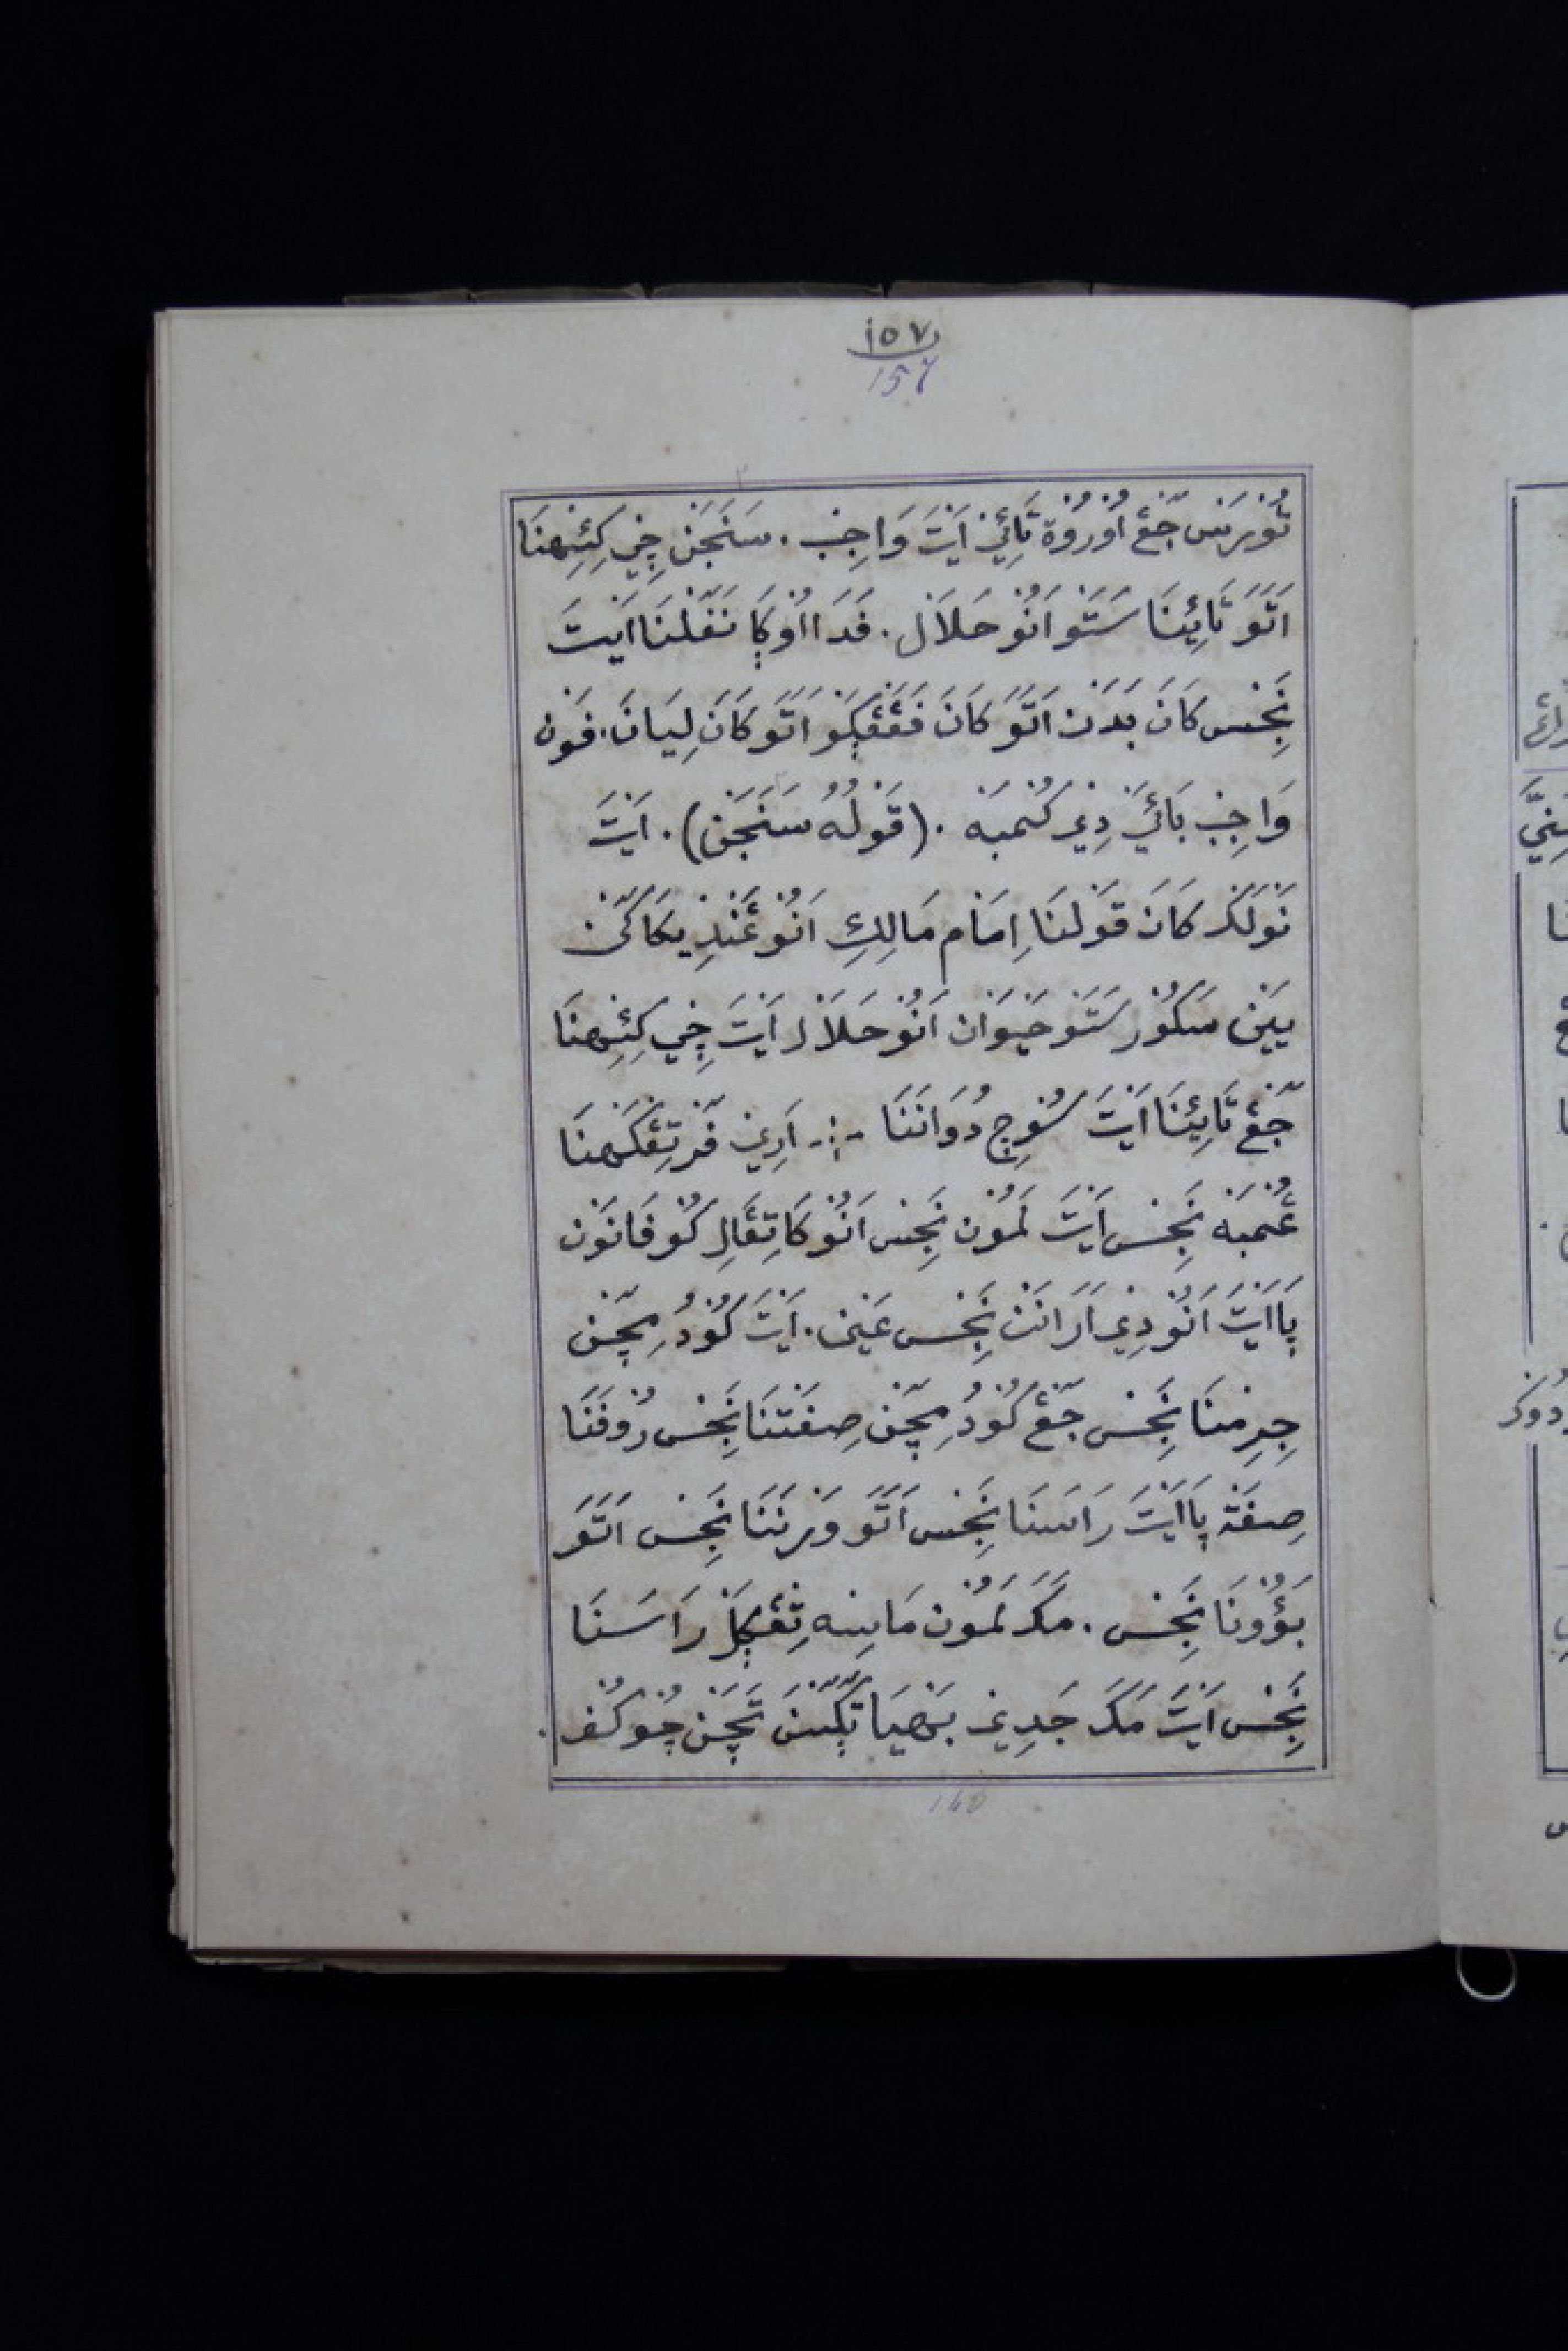 ١٥٧
157
تُوْنْرَنْس جَڠْڠ اُوْرُوْة تَائِيْ اَيْتَ وَاجِبْ . سَنَجَنْ چِيْ كِئِيْهْنَا
اَتَوْ تَائِيْنَا سَتَوْ اَنُوْ حَلَاَلْ . فَدَا اُوْكَا نَفْفَلْنَا اَيْتَ
نَجِسْ كَانَ بَدَنْ اَتَوْ كَانَ فَڠَڠْكَوْ اَتَوْ كَانَ لِيَانَ . فَوْن
وَاجِبْ بَائَيْ دِيْ كُمْبَهْ . (قَوْلُهُ سَنَجَنْ) . اَيْتَ
نَوْلَكْ كَانَ قَوْلْنَا اِمَامْ مَالِكِ اَنُوْ ڠَنْدِيْكَاكَنْ
يَيَنْ سَكُوْر سَتَوْ حَيَوَان اَنُوْ حَلَاَلْ اَيْتَ چِيْ كِئِيْهْنَا
جَڠْڠ تَائِيْنَا اَيْتَ سُوْچِ دُوَانَنَا ... اَرِيْ فَرْتِڠْكَهْنَا
ڠُمْبَهْ نَجِسْ اَيْتَ لَمُوْن نَجِسْ اَنُوْ كَاتِڠَالِ كُوْ فَانَوْن
ڽَا اَيْتَ اَنُوْ دِيْ اَرَانَنْ نَجِسْ عَيْن . اَيْتَ كُوْدُ مِچَنْ
جِرِمْنَا نَجِسْ جَڠْڠ كُوْدُ مِچَنْ صِفَتْنَا نَجِسْ رُوْفَنَا
صِفَة ڽَا اَيْتَ رَاسَنَا نَجِسْ اَتَوْ وَرْنَنَا نَجِسْ اَتَوَ
بَؤُوْنَا نَجِسْ . مَكَ لَمُوْن مَاسِهْ تِڠْكَلْ رَاسَنَا
نَجِسْ اَيْتَ مَكَ جَدِيْ بَهْيَا تَكَسْنَ تَچَنْ چُوْكُفْ .